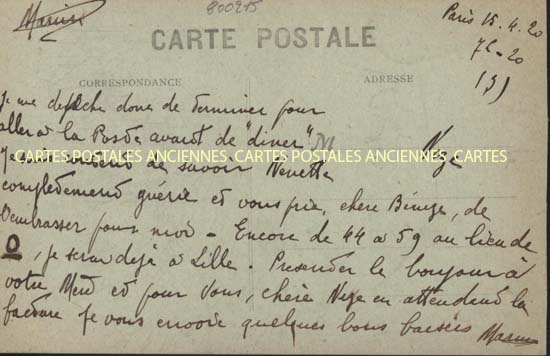 800215
Marius
Paris 15.4.20
7h-20
(3)
CARTE POSTALE
CORRESPONDANCE
ADRESSE
Je me dépêche donc de terminer pour
aller à la Poste avant de "diner"
M Nize
CARTES POSTALES ANCIENNES CARTES POSTALES ANCIENNES CARTES
Je suis content de savoir Nenette
complètement guérie et vous prie, chère de
l'embrasser pour moi - Encore de 44 à 59 au lieu de
0, je serai déjà à Lille. Présenter le bonjour à
votre et pour vous, chère Nize en attendant la
facture je vous envoie quelques bons baisers Marius